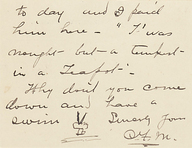 to day and I paid
him here - "T'was
nought but a tempest
in a Teapot" -
Why don't you come
down and have a
swim Sincerely from
M.